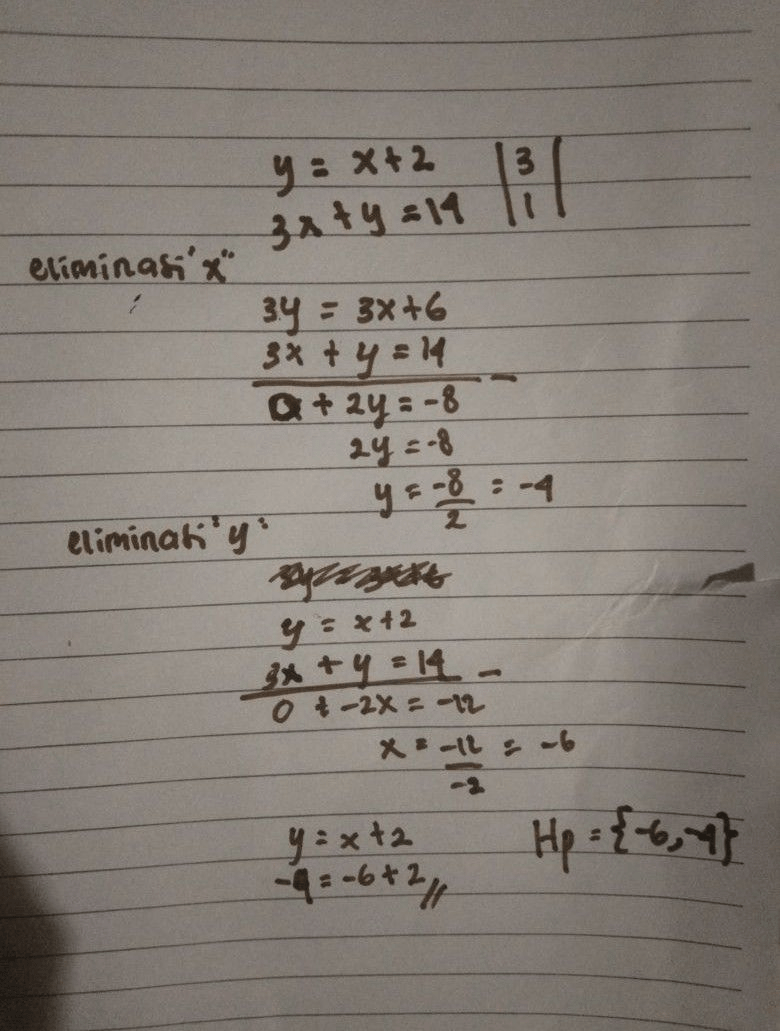 y = x+2 |3|
3x + y = 14 |1|
eliminasi "x"
3y = 3x+6
3x + y = 14 -
0 + 2y = -8
2y = -8
y = -8/2 = -4
eliminasi "y"
y = x+2
3x + y = 14 -
0 + -2x = -12
x = -12/-2 = -6
y = x+2 Hp = {-6, -4}
-4 = -6+2 //